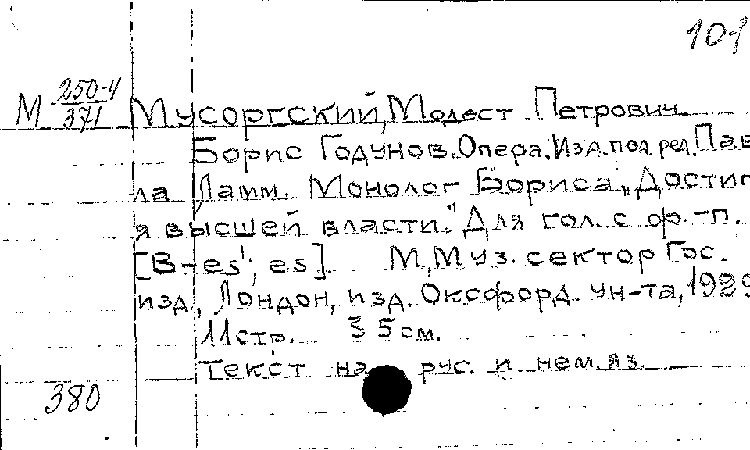 101
М 250-4/371 Мусоргский, Модест Петрович.
Борис Годунов. Опера. Изд. под ред. Пав
ла Ламм. Монолог Бориса „Достиг
я высшей власти." Для гол. с ф.-п.
[B-es¹; es]. М, Муз. сектор Гос.
изд., Лондон, изд. Оксфорд. ун-та, 1929
11 стр. 35 см.
Текст на рус. и нем. яз.
380